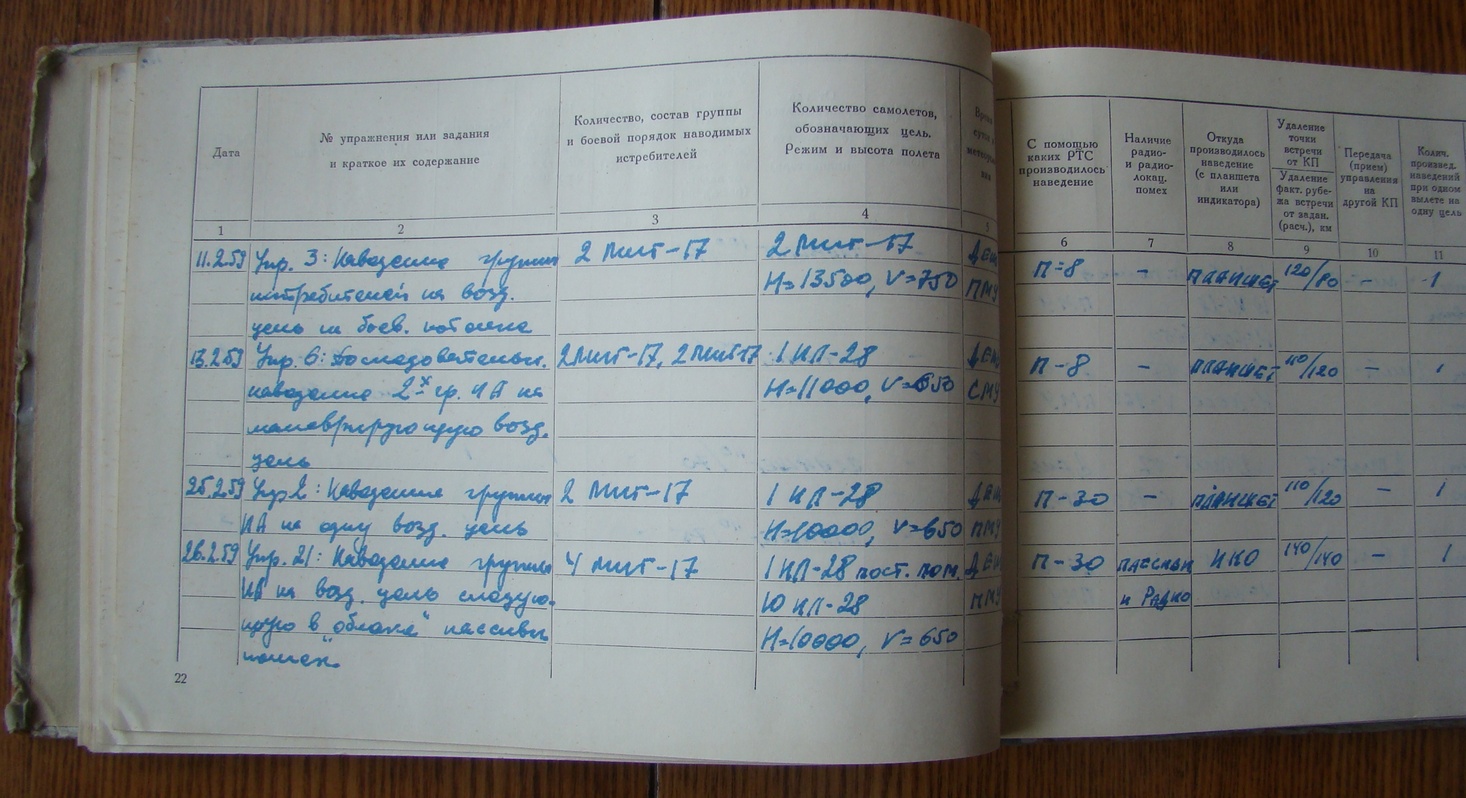 Дата
№ упражнения или задания
и краткое их содержание
Количество, состав группы
и боевой порядок наводимых
истребителей
Количество самолетов,
обозначающих цель.
Режим и высота полета
С помощью
каких РТС
производилось
наведение
Наличие
радио-
и радио-
локац.
помех
Откуда
производилось
наведение
(с планшета
или
индикатора)
Удаление
точки
встречи
от КП
Удаление
факт. рубе-
жа встречи
от задан.
(расч.), км
Передача
(прием)
управления
на
другой КП
Колич.
произвед.
наведений
при одном
вылете на
одну цель
1 2 3 4 5 6 7 8 9 10 11
11.2.59 Упр. 3: Наведение группы 2 МиГ-17 2 МиГ-17 ДЕН П-8 - ПЛАНШЕТ 120/80 - 1
истребителей на возд. Н=13500, V=750 ПМУ
цель на боев.
13.2.59 Упр. 6: Последовательн. 2 МиГ-17, 2 МиГ-17 1 ИЛ-28 ДЕН П-8 - ПЛАНШЕТ 110/120 - 1
наведение 2х гр. ИА на Н=11000, V=650 СМУ
маневрирующую возд.
цель
25.2.59 Упр 2: Наведение группы 2 МиГ-17 1 ИЛ-28 ДЕН П-30 - ПЛАНШЕТ 110/120 - 1
ИА на одну возд. цель Н=10000, V=650 ПМУ
26.2.59 Упр. 21: Наведение группы 4 МиГ-17 1 ИЛ-28 пост. пом. ДЕН П-30 ПАССИВН ИКО 140/140 - 1
ИА на возд. цель следую- 10 ИЛ-28 ПМУ и Радио
щую в "облаке" пассивн Н=10000, V=650
помех
22